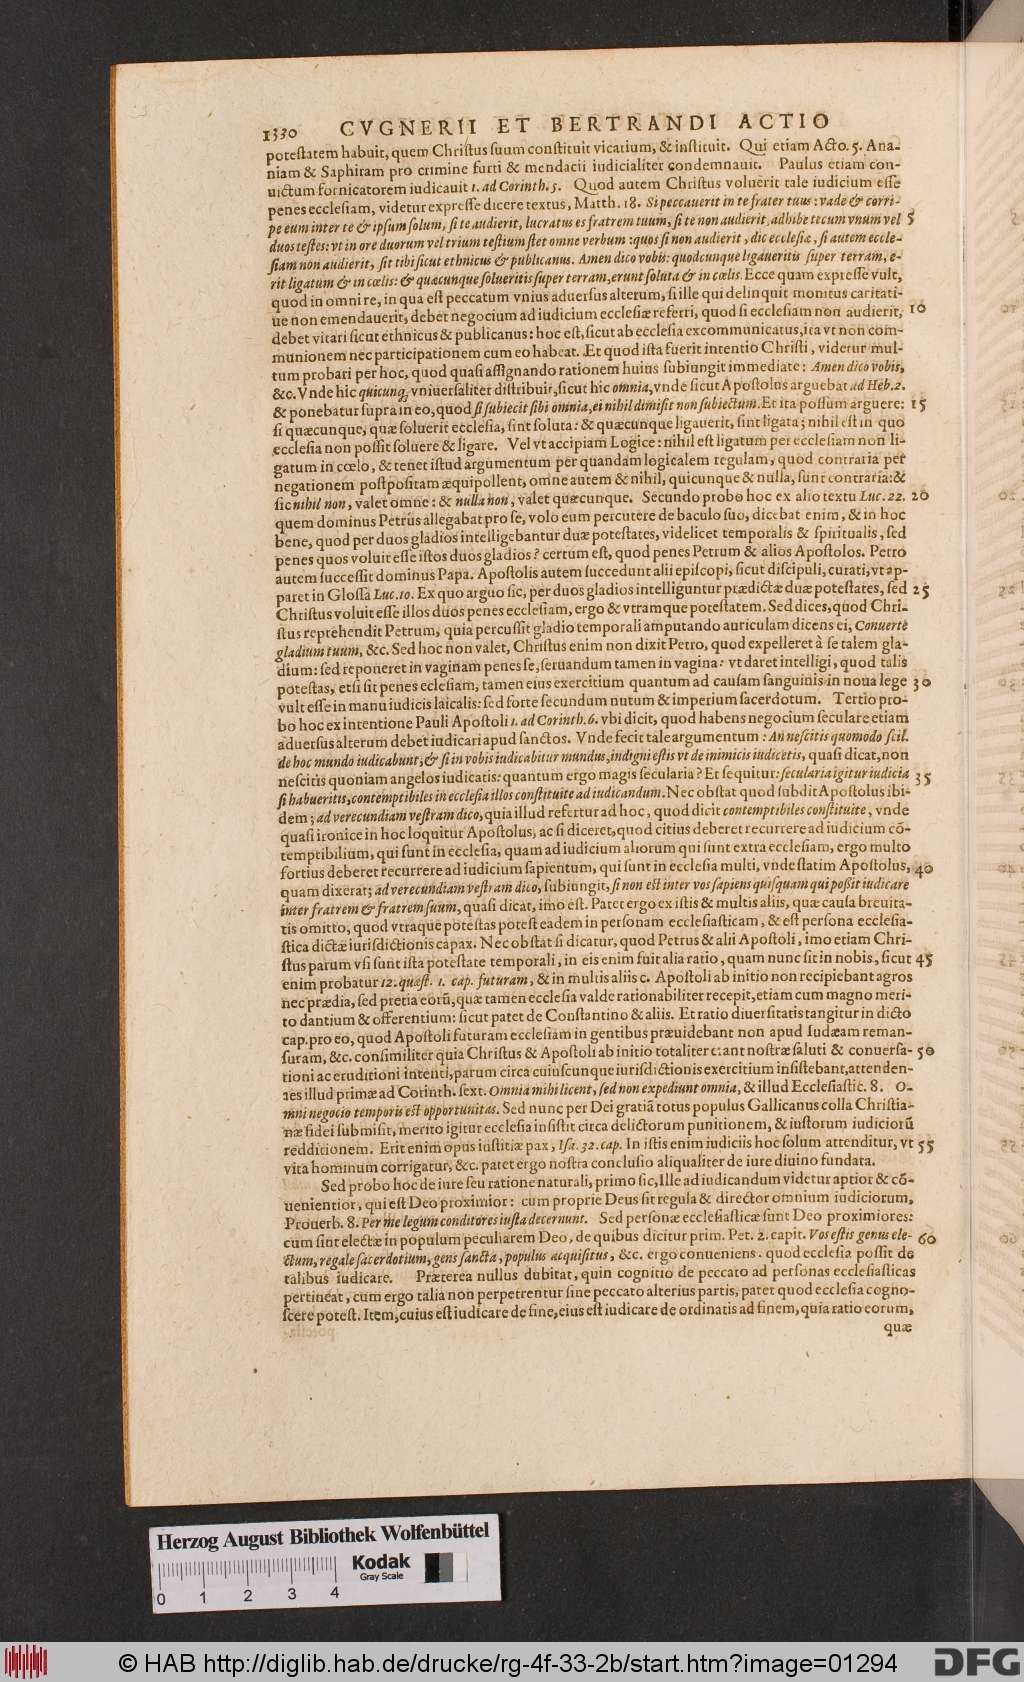 1330 CVGNERII ET BERTRANDI ACTIO
potestatem habuit, quem Christus suum constituit vicatium, & instituit. Qui etiam Acto. 5. Ana-
niam & Saphiram pro crimine furti & mendacii iudicialiter condemnauit. Paulus etiam con-
uictum fornicatorem iudicauit 1. ad Corinth. 5. Quod autem Christus voluerit tale iudicium esse
penes ecclesiam, videtur expresse dicere textus, Matth. 18. Si peccauerit in te frater tuus: vade & corri-
pe eum inter te & ipsum solum, si te audierit, lucratus es fratrem tuum, si te non audierit, adhibe tecum vnum vel 5
duos testes: vt in ore duorum vel trium testium stet omne verbum: quos si non audierit, dic ecclesiæ, si autem eccle-
siam non audierit, sit tibi sicut ethnicus & publicanus. Amen dico vobis: quodcunque ligaueritis super terram, e-
rit ligatum & in cœlis: & quæcunque solueritis super terram, erunt soluta & in cœlis. Ecce quam expresse vult,
quod in omni re, in qua est peccatum vnius aduersus alterum, si ille qui delinquit monitus caritati-
ue non emendauerit, debet negocium ad iudicium ecclesiæ referri, quod si ecclesiam non audierit, 10
debet vitari sicut ethnicus & publicanus: hoc est, sicut ab ecclesia excommunicatus, ita vt non com-
munionem nec participationem cum eo habeat. Et quod ista fuerit intentio Christi, videtur mul-
tum probari per hoc, quod quasi assignando rationem huius subiungit immediate: Amen dico vobis,
&c. Vnde hic quicunq; vniuersaliter distribuit, sicut hic omnia, vnde sicut Apostolus arguebat ad Heb. 2.
& ponebatur supra in eo, quod si subiecit sibi omnia, ei nihil dimisit non subiectum. Et ita possum arguere: 15
si quæcunque, quæ soluerit ecclesia, sint soluta: & quæcunque ligauerit, sint ligata; nihil est in quo
ecclesia non possit soluere & ligare. Vel vt accipiam Logice: nihil est ligatum per ecclesiam non li-
gatum in cœlo, & tenet istud argumentum per quandam logicalem regulam, quod contraria per
negationem postpositam æquipollent, omne autem & nihil, quicunque & nulla, sunt contraria: &
sic nihil non, valet omne: & nulla non, valet quæcunque. Secundo probo hoc ex alio textu Luc. 22. 20
quem dominus Petrus allegabat pro se, volo eum percutere de baculo suo, dicebat enim, & in hoc
bene, quod per duos gladios intelligebantur duæ potestates, videlicet temporalis & spiritualis, sed
penes quos voluit esse istos duos gladios? certum est, quod penes Petrum & alios Apostolos. Petro
autem successit dominus Papa. Apostolis autem succedunt alii episcopi, sicut discipuli, curati, vt ap-
paret in Glossa Luc. 10. Ex quo arguo sic, per duos gladios intelliguntur prædictæ duæ potestates, sed 25
Christus voluit esse illos duos penes ecclesiam, ergo & vtramque potestatem. Sed dices, quod Chri-
stus reprehendit Petrum, quia percussit gladio temporali amputando auriculam dicens ei, Conuerte
gladium tuum, &c. Sed hoc non valet, Christus enim non dixit Petro, quod expelleret à se talem gla-
dium: sed reponeret in vaginam penes se, seruandum tamen in vagina: vt daret intelligi, quod talis
potestas, etsi sit penes eclesiam, tamen eius exercitium quantum ad causam sanguinis in noua lege 30
vult esse in manu iudicis laicalis: sed forte secundum nutum & imperium sacerdotum. Tertio pro-
bo hoc ex intentione Pauli Apostoli 1. ad Corinth. 6. vbi dicit, quod habens negocium seculare etiam
aduersus alterum debet iudicari apud sanctos. Vnde fecit tale argumentum: An nescitis quomodo scil.
de hoc mundo iudicabunt; & si in vobis iudicabitur mundus, indigni estis vt de inimicis iudicetis, quasi dicat, non
nescitis quoniam angelos iudicatis: quantum ergo magis secularia? Et sequitur: secularia igitur iudicia 35
si habueritis, contemptibiles in ecclesia illos constituite ad iudicandum. Nec obstat quod subdit Apostolus ibi-
dem; ad verecundiam vestram dico, quia illud refertur ad hoc, quod dicit contemptibiles constituite, vnde
quasi ironice in hoc loquitur Apostolus, ac si diceret, quod citius deberet recurrere ad iudicium cō-
temptibilium, qui sunt in ecclesia, quam ad iudicium aliorum qui sunt extra ecclesiam, ergo multo
fortius deberet recurrere ad iudicium sapientum, qui sunt in ecclesia multi, vnde statim Apostolus, 40
quam dixerat; ad verecundiam vestram dico, subiungit, si non est inter vos sapiens quisquam qui possit iudicare
inter fratrem & fratrem suum, quasi dicat, imo est. Patet ergo ex istis & multis aliis, quæ causa breuita-
tis omitto, quod vtraque potestas potest eadem in personam ecclesiasticam, & est persona ecclesia-
stica dictæ iurisdictionis capax. Nec obstat si dicatur, quod Petrus & alii Apostoli, imo etiam Chri-
stus parum vsi sunt ista potestate temporali, in eis enim fuit alia ratio, quam nunc sit in nobis, sicut 45
enim probatur 12. quæst. 1. cap. futuram, & in multis aliis c. Apostoli ab initio non recipiebant agros
nec prædia, sed pretia eorū, quæ tamen ecclesia valde rationabiliter recepit, etiam cum magno meri-
to dantium & offerentium: sicut patet de Constantino & aliis. Et ratio diuersitatis tangitur in dicto
cap. pro eo, quod Apostoli futuram ecclesiam in gentibus præuidebant non apud Iudæam reman-
suram, &c. consimiliter quia Christus & Apostoli ab initio totaliter erant nostræ saluti & conuersa- 50
tioni ac eruditioni intenti, parum circa cuiuscunque iurisdictionis exercitium insistebant, attenden-
tes illud primæ ad Corinth. sext. Omnia mihi licent, sed non expediunt omnia, & illud Ecclesiastic. 8. O-
mni negocio temporis est opportunitas. Sed nunc per Dei gratiā totus populus Gallicanus colla Christia-
næ fidei submisit, merito igitur ecclesia insistit circa delictorum punitionem, & iustorum iudiciorū
redditionem. Erit enim opus iustitiæ pax, Isa. 32. cap. In istis enim iudiciis hoc solum attenditur, vt 55
vita hominum corrigatur, &c. patet ergo nostra conclusio aliqualiter de iure diuino fundata.
Sed probo hoc de iure seu ratione naturali, primo sic, Ille ad iudicandum videtur aptior & cō-
uenientior, qui est Deo proximior: cum proprie Deus sit regula & director omnium iudiciorum,
Prouerb. 8. Per me legum conditores iusta decernunt. Sed personæ ecclesiasticæ sunt Deo proximiores:
cum sint electæ in populum peculiarem Deo, de quibus dicitur prim. Pet. 2. capit. Vos estis genus ele- 60
ctum, regale sacerdotium, gens sancta, populus acquisitus, &c. ergo conueniens. quod ecclesia possit de
talibus iudicare. Præterea nullus dubitat, quin cognitio de peccato ad personas ecclesiasticas
pertineat, cum ergo talia non perpetrentur sine peccato alterius partis, patet quod ecclesia cogno-
scere potest. Item, cuius est iudicare de fine, eius est iudicare de ordinatis ad finem, quia ratio eorum,
quæ
Herzog August Bibliothek Wolfenbüttel
Kodak
Gray Scale
0 1 2 3 4
© HAB http://diglib.hab.de/drucke/rg-4f-33-2b/start.htm?image=01294
DFG